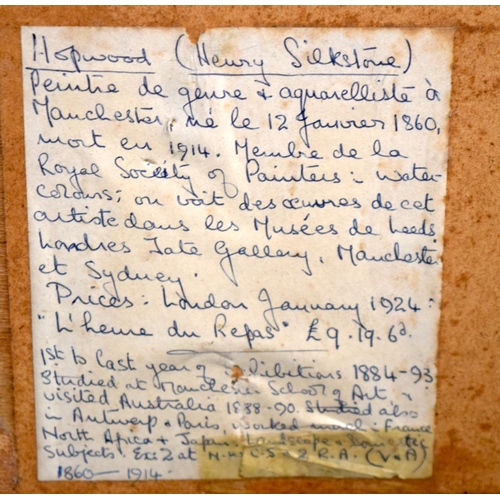 Hopwood (Henry Silkstone)
Peintre de genre & aquarelliste à
Manchester, né le 12 Janvier 1860,
mort en 1914. Membre de la
Royal Society of Painters in Water-
colours; on voit des œuvres de cet
artiste dans les Musées de Leeds
Londres Tate Gallery, Manchester
et Sydney.
Prices: London January 1924:
"L'heure du Repas" £9.19.6d.
1st to Last year of Exhibitions 1884-93
Studied at Manchester School of Art,
visited Australia 1888-90. Studied also
in Antwerp & Paris, worked much in France
North Africa & Japan. Landscape & Domestic
Subjects. Ex: 2 at 2 R.A. (V&A)
1860—1914.